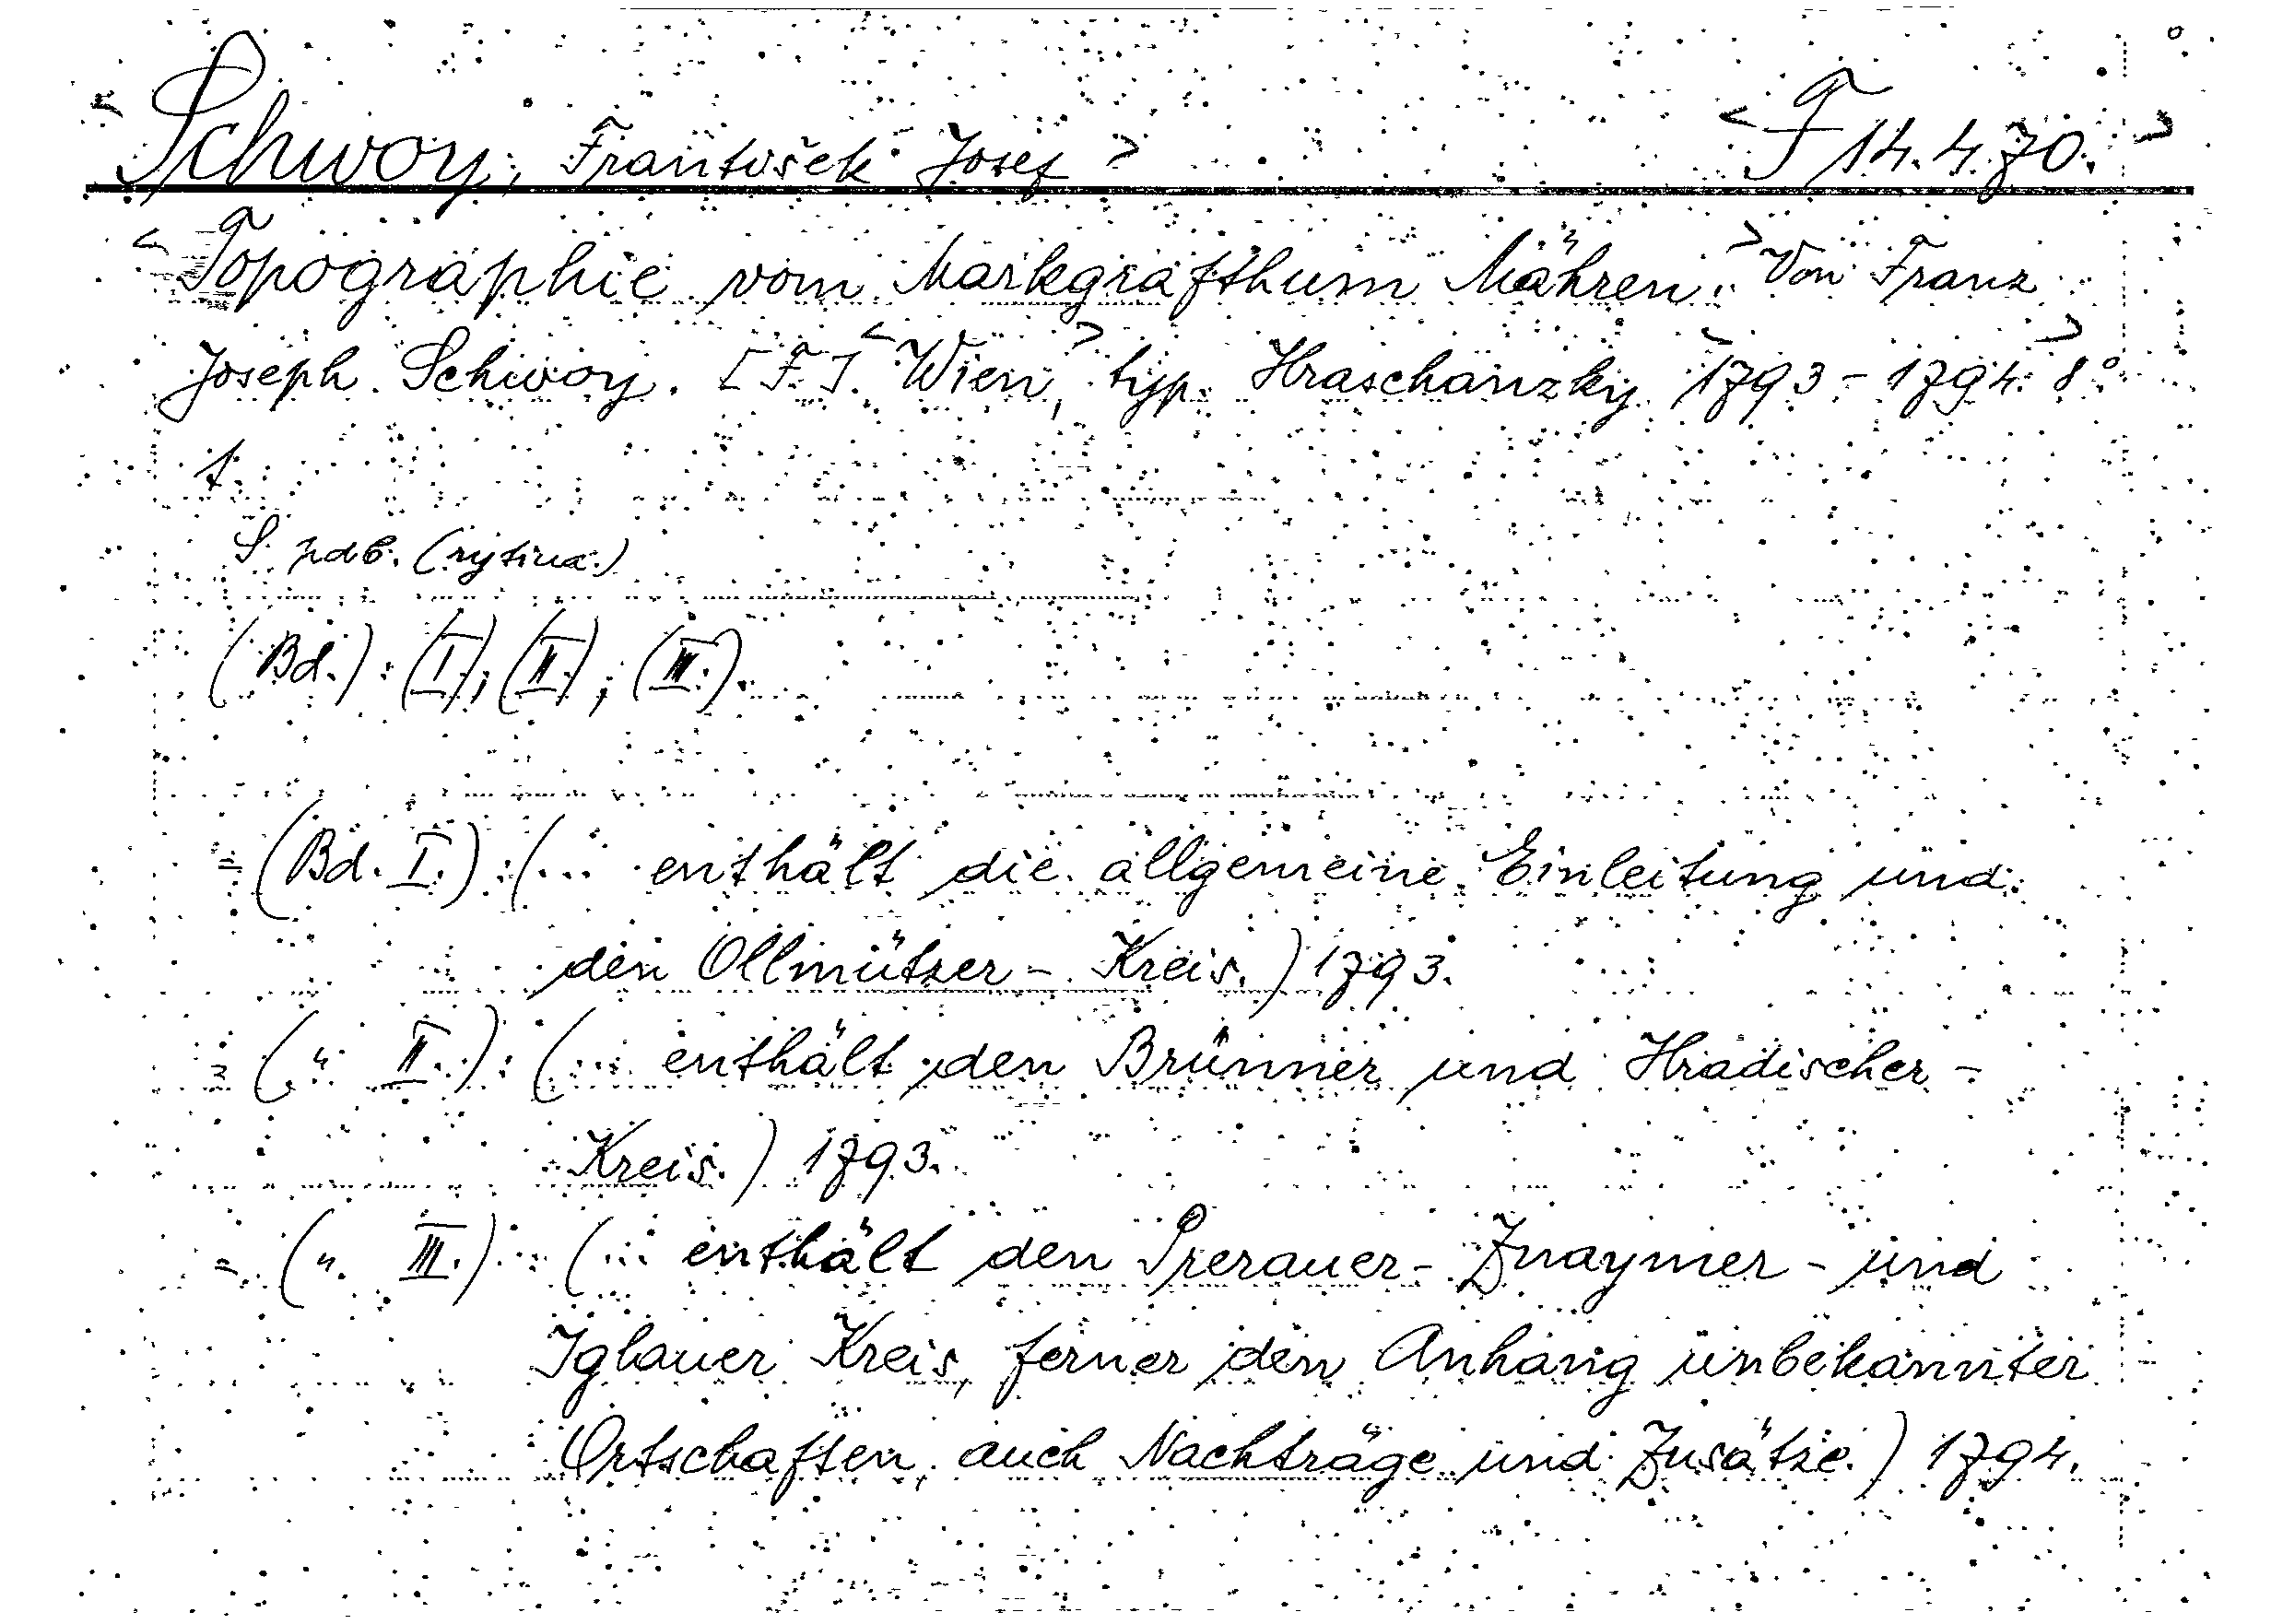 < Schwoy, František Josef > < F 14.4.70. >
< Topographie vom Markgrafthum Mähren. > Von Franz
Joseph Schwoy. [F.] < Wien, > typ. Hraschanzky < 1793 - 1794. > 8°
1.
S pdb. (rytina.)
(Bd.): (I.); (II.); (III.).
= (Bd. I.): (... enthält die allgemeine Einleitung und
den Ollmützer - Kreis.) 1793.
= (" II.): (... enthält den Brünner und Hradischer -
Kreis.) 1793.
= (" III.): (... enthält den Prerauer - Znaymer - und
Iglauer Kreis, ferner den Anhang unbekannter
Ortschaften, auch Nachträge und Zusätze.) 1794.